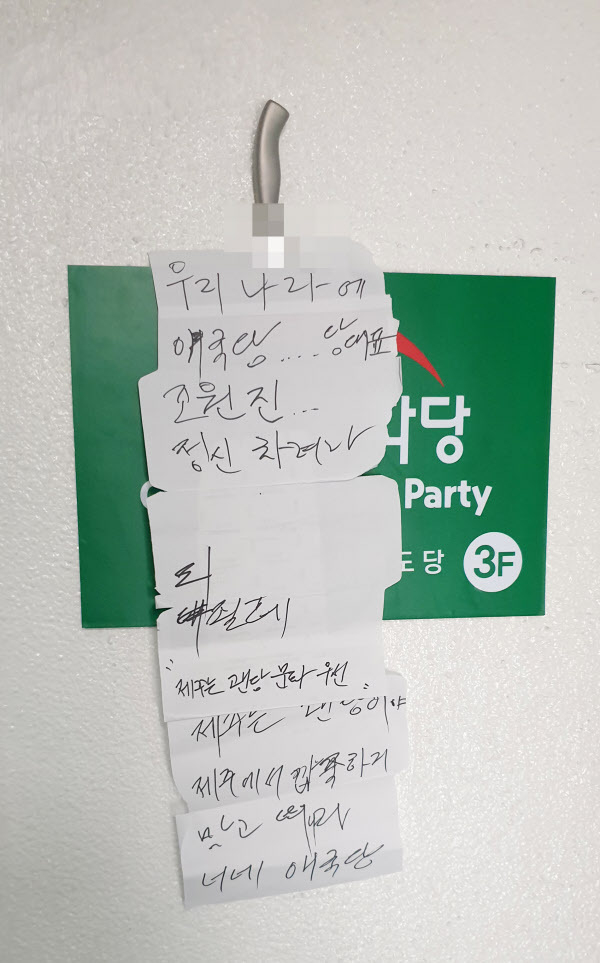 우리 나라에
애국당.... 당대표
조원진...
정신 차려라
당
Party
도당 3F
"제주는 괸당 문화 우선
제주는 괸당이야
제주에서 깝쭉하지
말고 떠나
너네 애국당